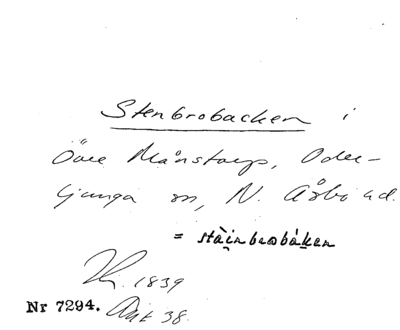 Stenbrobacken i
Övre Månstorp, Oder-
ljunga sn, N. Åsbo hd.
= stàinbrobáken
1839
Nr 7294. Akt 38.